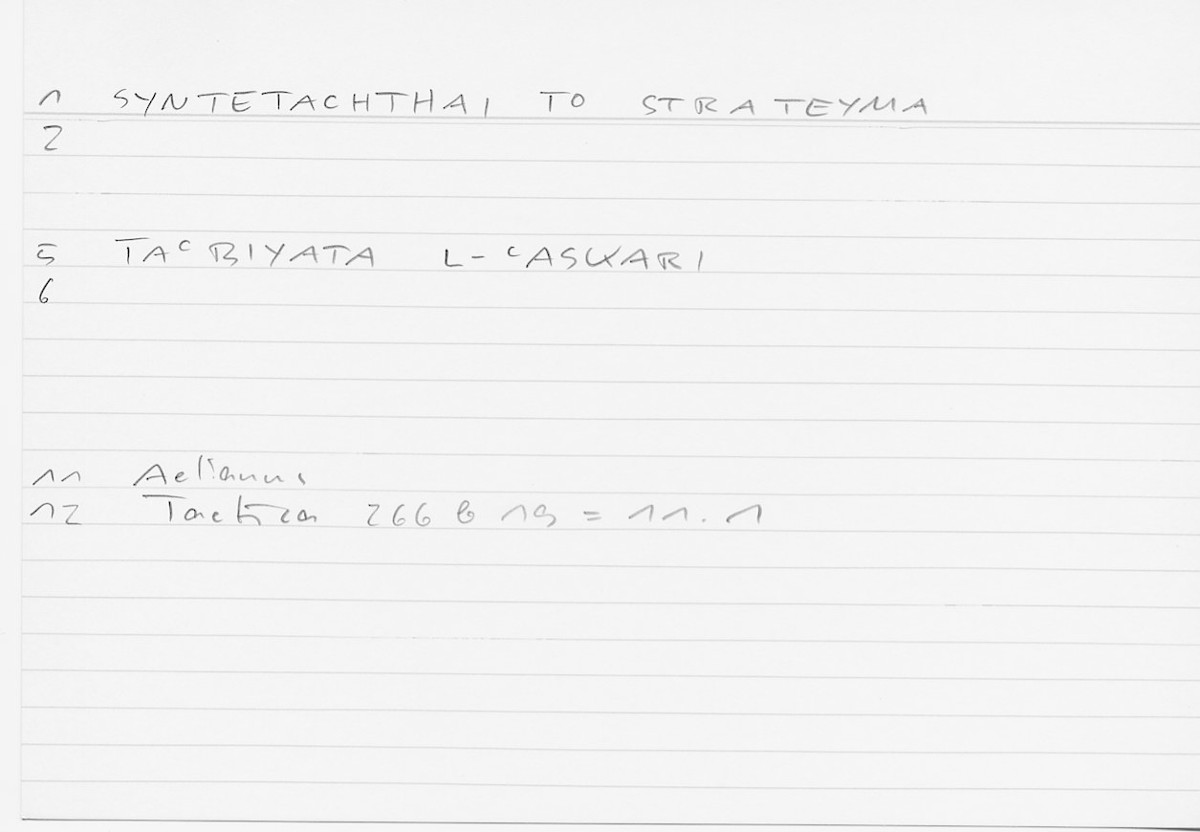 1 SYNTETACHTHAI TO STRATEYMA
2
5 TAᶜBIYATA L-ᶜASKARI
6
11 Aelianus
12 Tactica 266 b 19 = 11.1